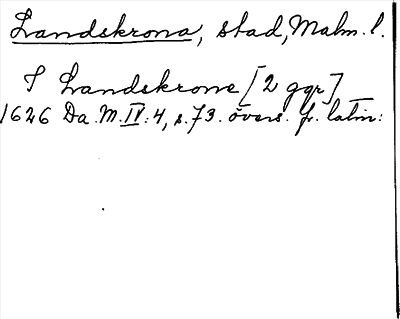 Landskrona, stad, Malm. l.
I Landskrone [2 ggr]
1626 Da. M. IV: 4, s. 73. övers. fr. latin: